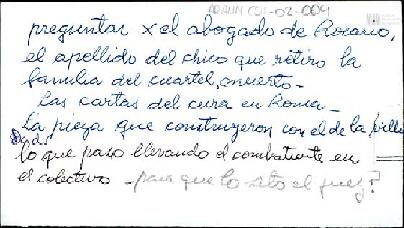 ARANM C01-02-004
preguntar x el abogado de Rosario,
el apellido del chico que retiro la
familia del cuartel, muerto-
Las cartas del cura en Roma-
La pieza que construyeron con el de la
lo que paso llevando el combatiente en
el colectivo - para que lo sito el juez?